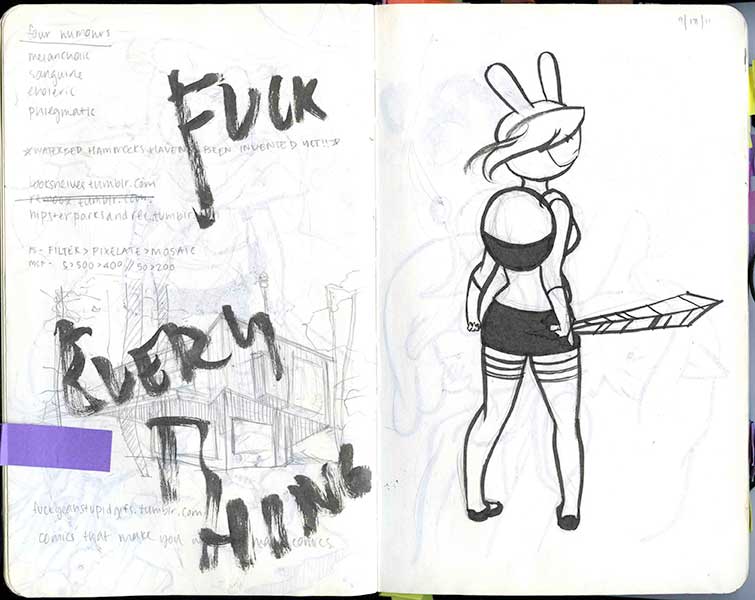 four humours
melancholic
sanguine
choleric
phlegmatic
FUCK
WATERBED HAMMOCKS HAVEN'T BEEN INVENTED YET!!
bookshelves.tumblr.com
tumblr.com
hipsterparksandrec.tumblr
PS - FILTER > PIXELATE > MOSAIC
5>500>400//50>200
EVERY
THING
fuckyeahstupidgifs.tumblr.com
comics that make you comics
9/17/11